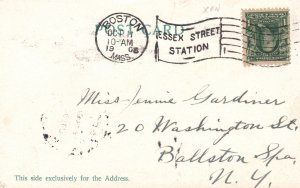 POST CARD
BOSTON
OCT 11
10-AM
1906
MASS.
ESSEX STREET
STATION
Miss Jennie Gardiner
20 Washington St.
Ballston Spa,
N. Y.
This side exclusively for the Address.